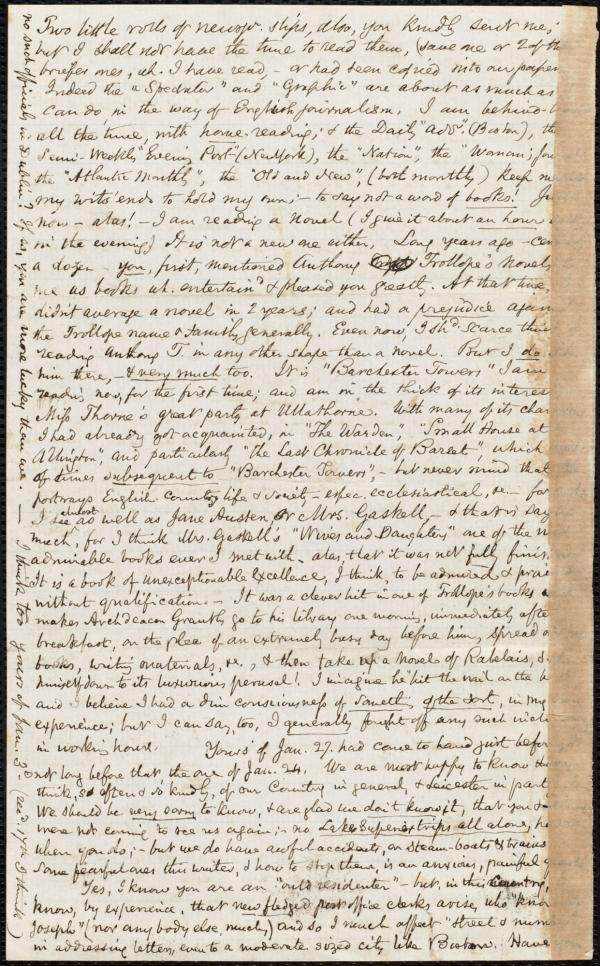 Two little rolls of newsp. slips, also, you kindly sent me,
but I shall not have the time to read them, (save one or 2 of the
briefer ones, wh. I have read, - or had seen copied into our papers
Indeed the "Spectator" and "Graphic" are about as much as
can do, in the way of English journalism. I am behind-
all the time, with home-reading; & the Daily "Adv". (Boston), the
Semi-Weekly "Evening Post" (New York), the "Nation", the "Woman's Jour
the "Atlantic Monthly", the "Old and New", (both monthly) keep me
my wits' ends to hold my own; - to say not a word of books! Ju
now - alas! - I am reading a Novel (I give it about an hour
in the evening) It is not a new one either, Long years ago - cer
a dozen - you, first, mentioned Anthony Trollope's Novels
me as books wh. entertain'd & pleased you greatly. At that time,
didn't average a novel in 2 years; and had a prejudice again
the Trollope name & family generally. Even now, I sh'd scarce thin
reading Anthony T. in any other shape than a novel. But I do
him there, - & very much too. It is "Barchester Towers" I am
reading now, for the first time; and am in the thick of its interes
Miss Thorne's great party at Ullathorne. With many of its char
I had already got acquainted, in "The Warden", "Small House at
Allington", and particularly "the Last Chronicle of Barset", which
of times subsequent to "Barchester Towers", - but never mind that
portrays English country life & society, - espec. ecclesiastical, &c. - for
I see almost as well as Jane Austen, or Mrs. Gaskell, - & that is say
much, for I think Mrs. Gaskell's "Wives and Daughters" one of the m
admirable books ever I met with - alas, that it was not full finis
It is a book of unexceptionable excellence, I think, to be admired & prai
without qualification. - It was a clever hit in one of Trollope's books
makes Archdeacon Grantly go to his library one morning, immediately afte
breakfast, on the plea of an extremely busy day before him, spread o
books, writing materials, &c., & then take up a Novel of Rabelais, s
himself down to its luxurious perusal! I imagine he hit the nail on the h
and I believe I had a dim consciousness of something of the sort, in my
experience; but I can say, too, I generally fought off any such
in working hours. Yours of Jan. 27. had come to hand just befor
not long before that, the one of Jan. 24. We are most happy to know th
think, so often & so kindly, of our Country in general, & Leicester in part
We should be very sorry to know, & are glad we don't know it, that you &
were not coming to see us again; - no Lake Superior trips all alone,
when you do; - but we do have awful accidents, on steam-boats & trains
Some fearful ones this winter, & how to stop them, is an anxious, painful q
Yes, I know you are an "ould residenter" - but, in this country,
know, by experience, that new fledged post office clerks arise, who "know
Joseph" (nor any body else, much,) and so I much affect "street & num
in addressing letters, even to a moderate sized city like Boston. Have
no such officials in Dublin! If so, you are more lucky than we. - I think too yours of Jan. 3d (rec'd 17th I think)